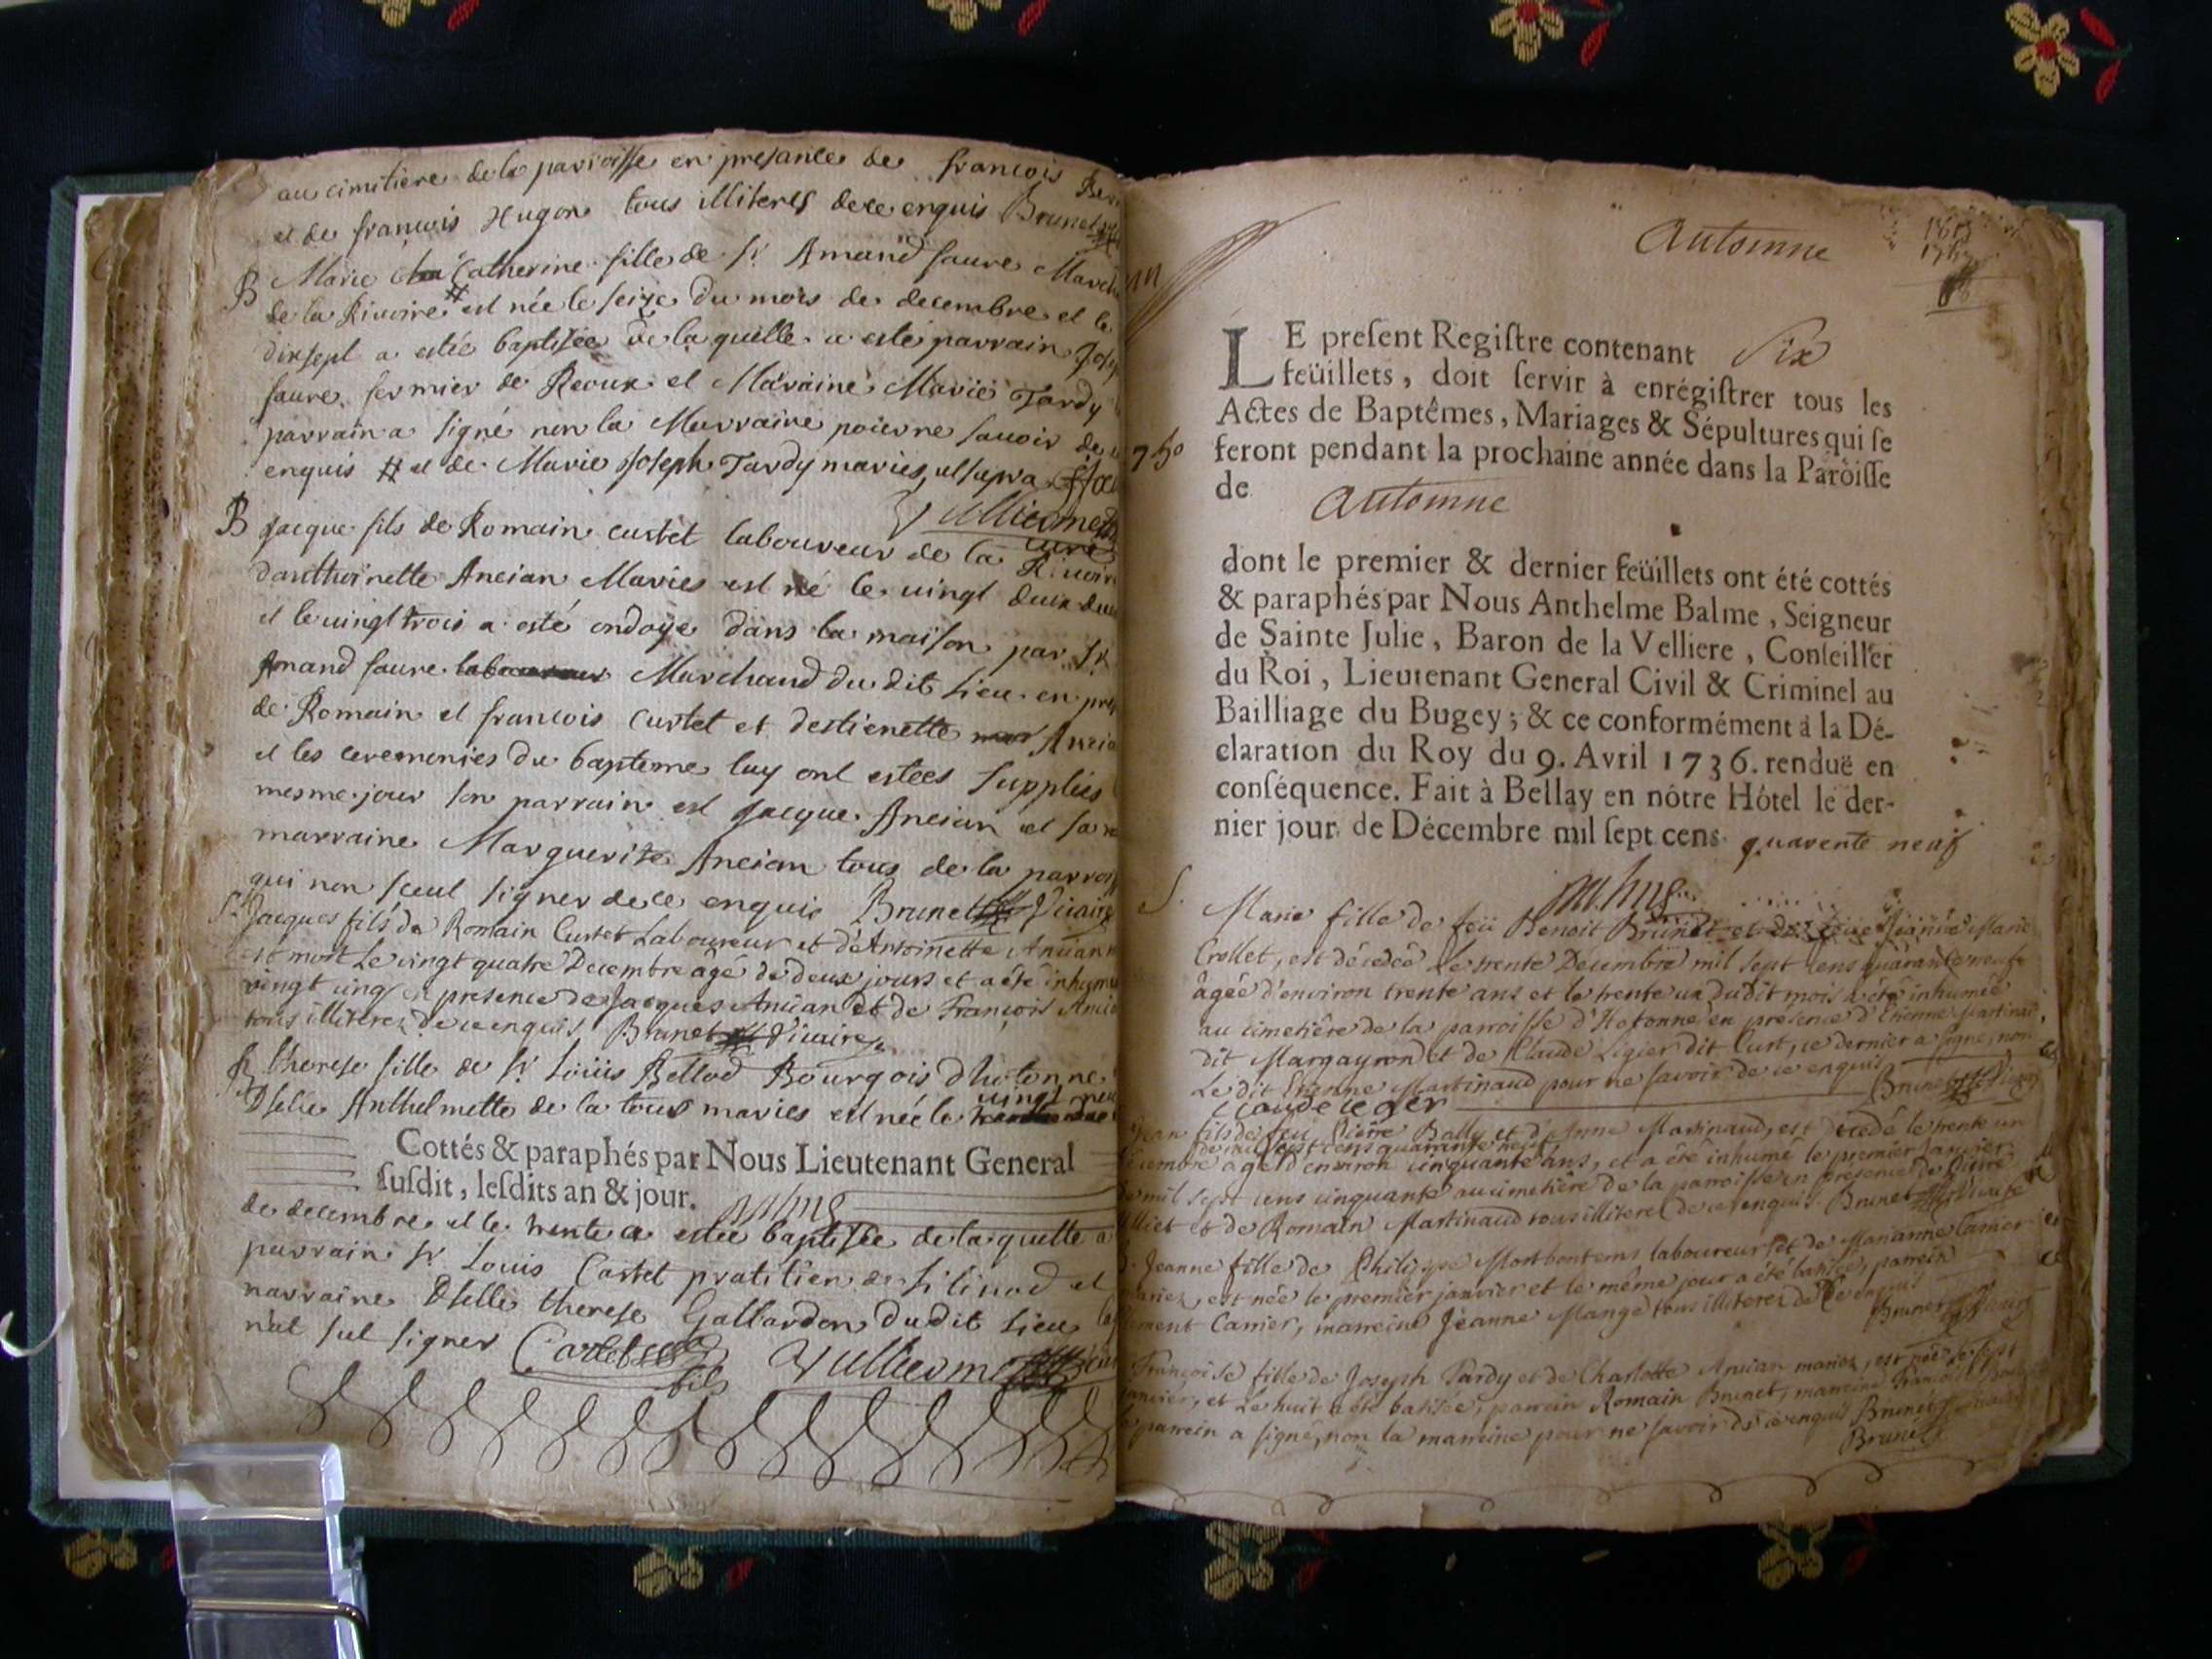 au cimitiere de la parroisse en presance de francois
et de francois Hugon tous illiteres de ce enquis Brunet
B Marie Catherine fille de Sr Amand faure March
de la Riuoire # est née le seize du mois de decembre et le
dixsept a estée baptisée de laquelle a esté parrain Josep
faure fermier de Reoux et Maraine Marie Tardy
parrain a signé non la Marraine poier ne sauoir de
enquis # et de Marie Joseph Tardy maries, ut supra
Vullieme
curé
B Jacque fils de Romain custet laboureur de la Riuoire
dantthoinette Ancian Maries est né le uingt deux du
et le uingt trois a esté ondoye dans la maison par Sr
Amand faure Marchand du dit Lieu en pre
de Romain et francois Custet et destienette Ancia
et les ceremonies du bapteme luy ont estees supplies
mesme jour son parrain est Jacque Ancian et sa
marraine Marguerite Ancian tous de la parrois
qui non sceut signer de ce enquis Brunet Vicaire
S. Jacques fils de Romain Custet Laboureur et d'Antoinette Ancian
est mort Le vingt quatre Decembre âgé de deux jours et a été inhumé
vingt cinq en presence de Jacques Ancian et de François Ancia
tous illiterez de ce enquis Brunet Vicaire
B therese fille de Sr Loüis Bellod Bourgois dhotonne
Dselle Anthelmette de la tour maries est née le uingt neu
Cottés & paraphés par Nous Lieutenant General
susdit, lesdits an & jour.
de decembre et le trente a estée baptisée de laquelle a
parrain Sr Louis Cartet pratitien de et
marraine Dselle therese Gallardon dudit Lieu
n'at sut signer
fils
Automne
LE present Registre contenant Six
feüillets, doit servir à enrégistrer tous les
Actes de Baptêmes, Mariages & Sépultures qui se
750 feront pendant la prochaine année dans la Paroisse
de Automne
dont le premier & dernier feüillets ont été cottés
& paraphés par Nous Anthelme Balme, Seigneur
de Sainte Julie, Baron de la Velliere, Conseiller
du Roi, Lieutenant General Civil & Criminel au
Bailliage du Bugey; & ce conformément à la Dé-
claration du Roy du 9. Avril 1736. renduë en
conséquence. Fait à Bellay en nôtre Hôtel le der-
nier jour de Décembre mil sept cens quarente neuf
Balme
S. Marie fille de feü Benoit Brunet et de Jeanne Marie
Crollet, est décedée Le trente Decembre mil sept cens quarante neuf
âgée d'environ trente ans et le trente un dudit mois a été inhumée
au cimetiére de la parroisse d'Hotonne en presence d'Etienne Martinaud
dit Margayron et de Claude Ligier dit Curt, ce dernier a signé, non
Le dit Etienne Martinaud pour ne savoir de ce enquis Brunet
Claude leger
Jean fils de feu Pierre Bally et d'Anne Martinaud, est decedé le trente un
de mil sept cens quarante neuf
Decembre âgé d'environ cinquante ans, et a été inhumé le premier Janvier
mil sept cens cinquante au cimetiere de la parroisse en presence de Pierre
et de Romain Martinaud tous illiterez de ce enquis. Brunet Vicaire
Jeanne fille de Philippe Montbontems laboureur et de Marianne Carrier
mariez, est née le premier janvier et le même jour a été batisée, parrein
Clement Carrier, marreine Jeanne Mange tous illiterez de ce enquis
Brunet Vicaire
Françoise fille de Joseph Tardy et de Charlotte Ancian mariez, est née le sept
janvier, et Le huit a été batisée, parrein Romain Brunet, marreine Françoise
parrein a signé, non la marreine pour ne savoir de ce enquis Brunet
Brunet